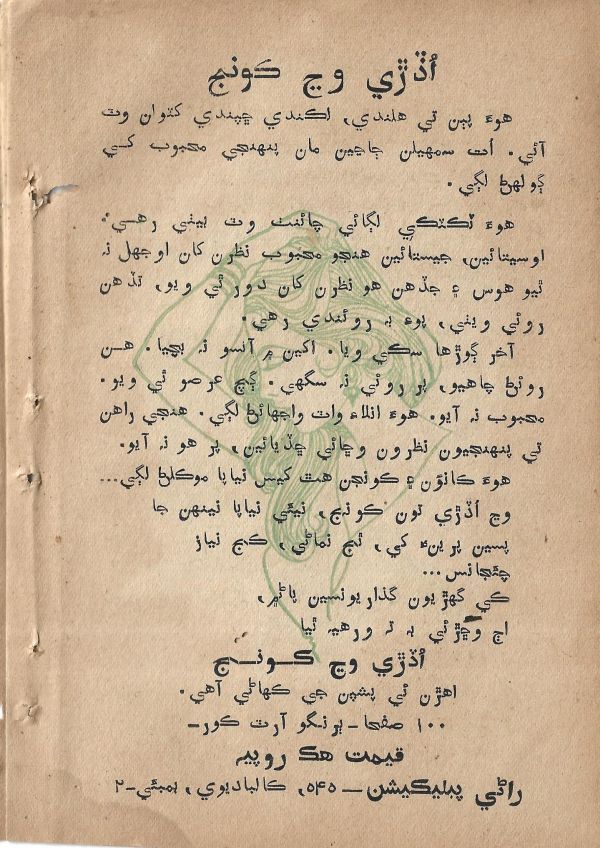 اُڏڙي وڃ ڪونج
هوءَ پٻن تي هلندي، لڪندي ڇپندي کٽوان وٽ
آئي. اُت سمهيلن ڄاڃين مان پنهنجي محبوب کي
ڳولهڻ لڳي.
هوءَ ٽڪٽڪي لڳائي چائنٺ وٽ بيٺي رهي.
اوسيتائين، جيستائين هنجو محبوب نظرن کان اوجهل نہ
ٿيو هوس ۽ جڏهن هو نظرن کان دور ٿي ويو، تڏهن
روئي ويٺي، پوءِ بہ روئندي رهي.
آخر ڳوڙها سڪي ويا. اکين ۾ آنسو نہ بچيا. هن
روئڻ چاهيو، پر روئي نہ سگهي. ڳچ عرصو ٿي ويو.
محبوب نہ آيو. هوءَ انلاءِ واٽ واجهائڻ لڳي. هنجي راهن
تي پنهنجيون نظرون وڇائي ڇڏيائين، پر هو نہ آيو.
هوءَ ڪانون ۽ ڪونجن هٿ کيس نياپا موڪلڻ لڳي...
وڃ اُڏڙي تون ڪونج، نيئي نياپا نينهن جا
پسين پرينءَ کي، ٿج نماڻي، ڪج نياز
چئجانس...
ڪي گهڙيون گذاريونسين پاڻ ۾،
اڄ وڇڙئي بہ نہ ورهيہ ٿيا
اُڏڙي وڃ ڪونج
اهڙن ئي پشپن جي ڪهاڻي آهي.
۱۰۰ صفحا – ٻرنگو آرٽ ڪور –
قيمت هڪ روپيہ
راڻي پبليڪيشن – ۵۴۵، ڪالباديوي، بمبئي – ۲